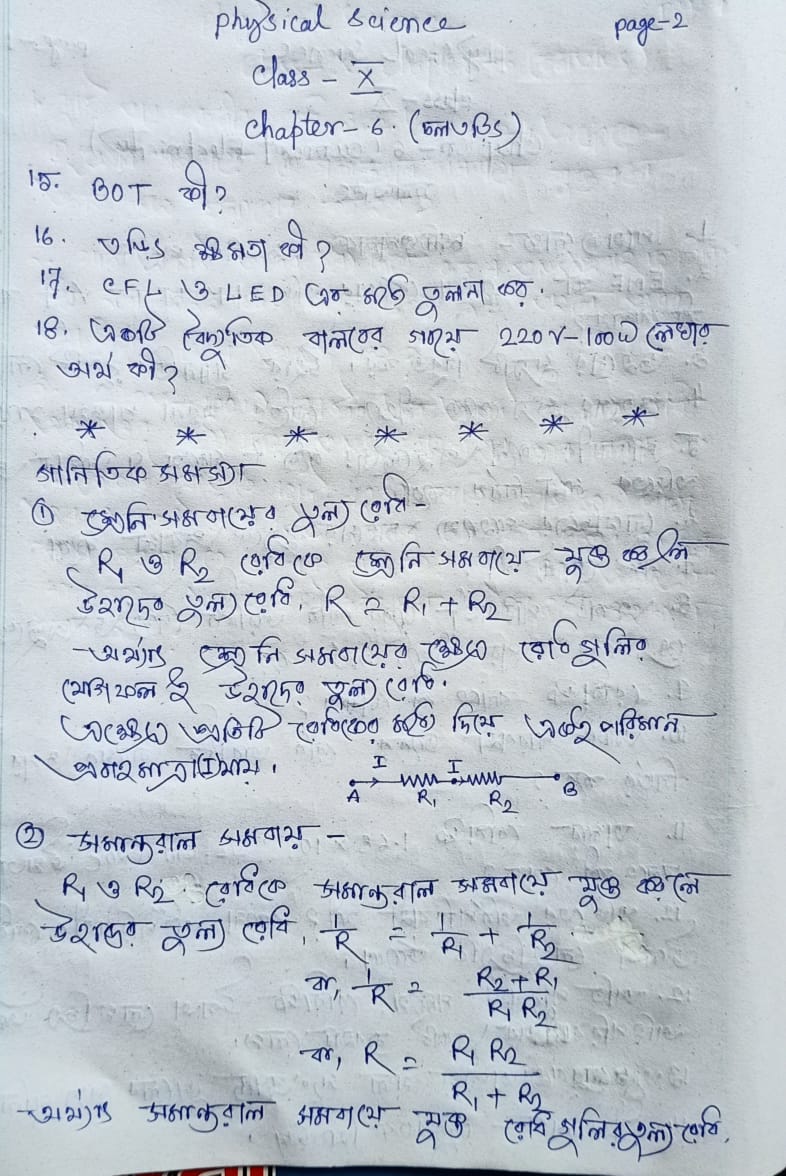 Physical Science page-2
Class - X
Chapter-6. (চলতড়িৎ)
15. BOT কী?
16. তড়িৎ ক্ষমতা কী?
17. CFL ও LED এর মধ্যে তুলনা কর.
18. একটি বৈদ্যুতিক বালবের গায়ে 220V-100W লেখার
অর্থ কী?
* * * * * * *
গানিতিক সমস্যা
① শ্রেনি সমবায়ের তুল্য রোধ-
R₁ ও R₂ রোধকে শ্রেনি সমবায়ে যুক্ত করলে
উহাদের তুল্য রোধ, R = R₁ + R₂
-অর্থাৎ শ্রেনি সমবায়ের ক্ষেত্রে রোধগুলির
যোগফল ই উহাদের তুল্য রোধ.
এক্ষেত্রে প্রতিটি রোধকের মধ্যে দিয়ে একই পরিমান
প্রবাহমাত্রা (I) যায়।
I I
A R₁ R₂ B
② সমান্তরাল সমবায় -
R₁ ও R₂ রোধকে সমান্তরাল সমবায়ে যুক্ত করলে
উহাদের তুল্য রোধ, 1/R = 1/R₁ + 1/R₂
বা, 1/R = R₂+R₁/R₁R₂
বা, R = R₁R₂/R₁+R₂
-অর্থাৎ সমান্তরাল সমবায়ে যুক্ত রোধগুলির তুল্য রোধ,